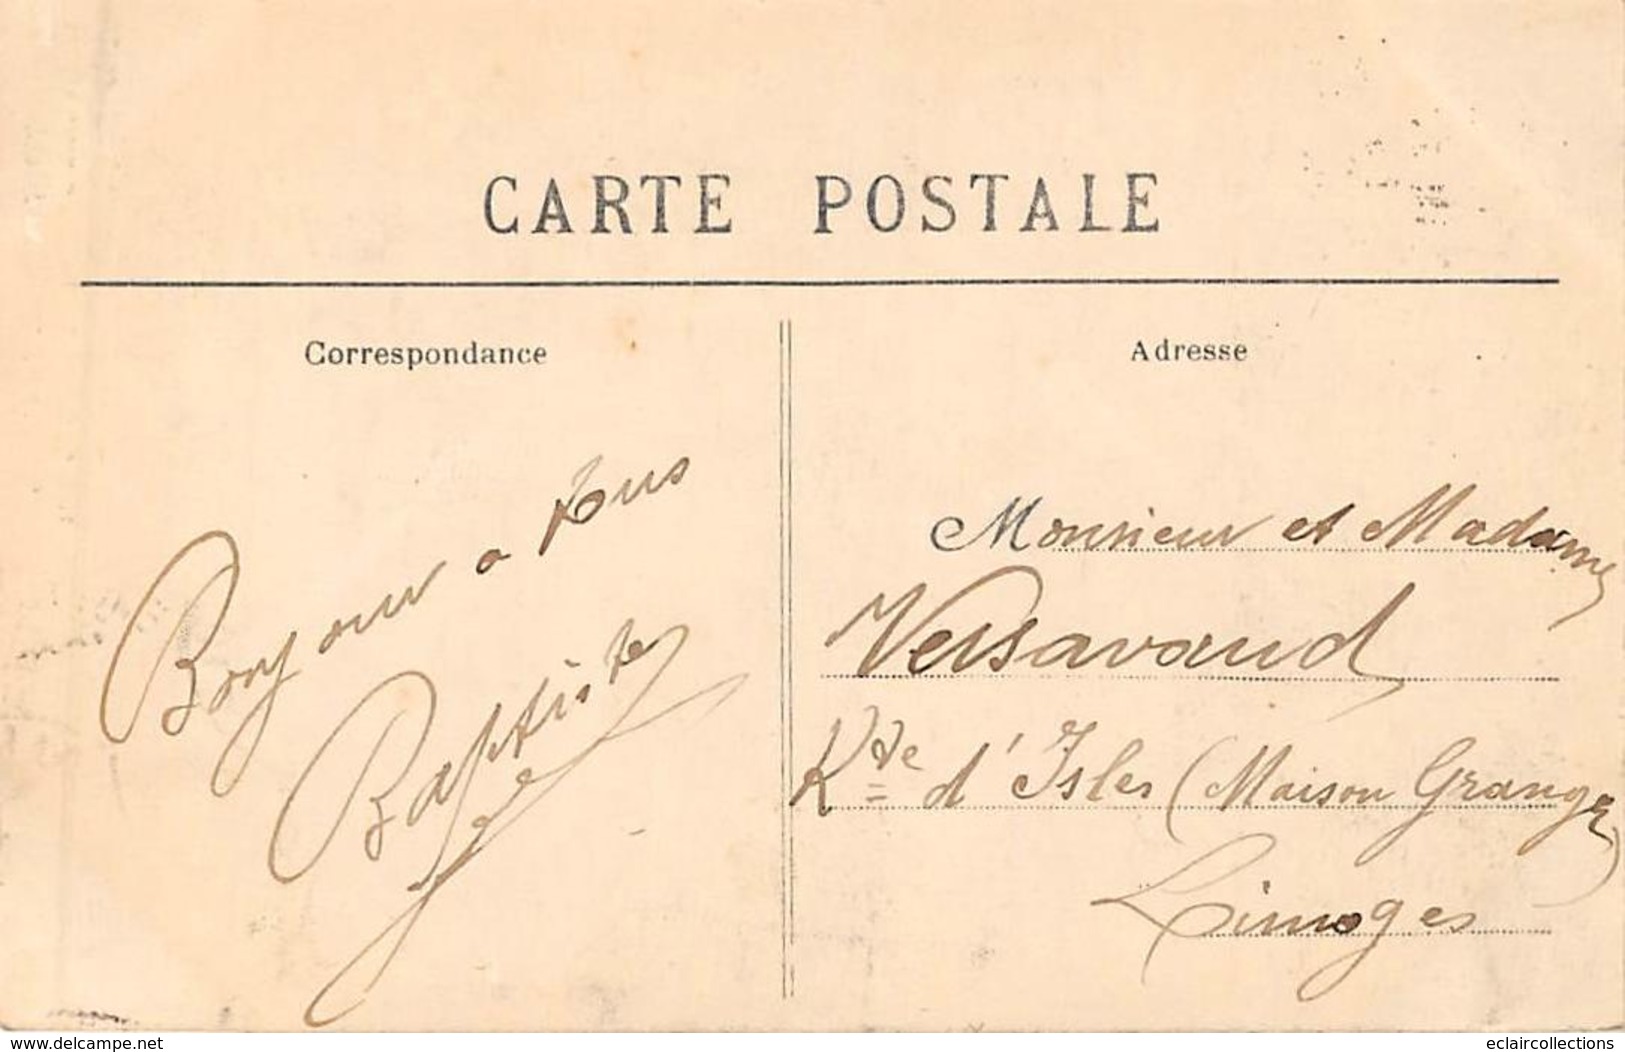 CARTE POSTALE
Correspondance
Adresse
Bonjour a tous
Baptiste
Monsieur et Madame
Versavaud
Rte d'Isles (Maison Granger)
Limoges
www.delcampe.net
eclaircollections